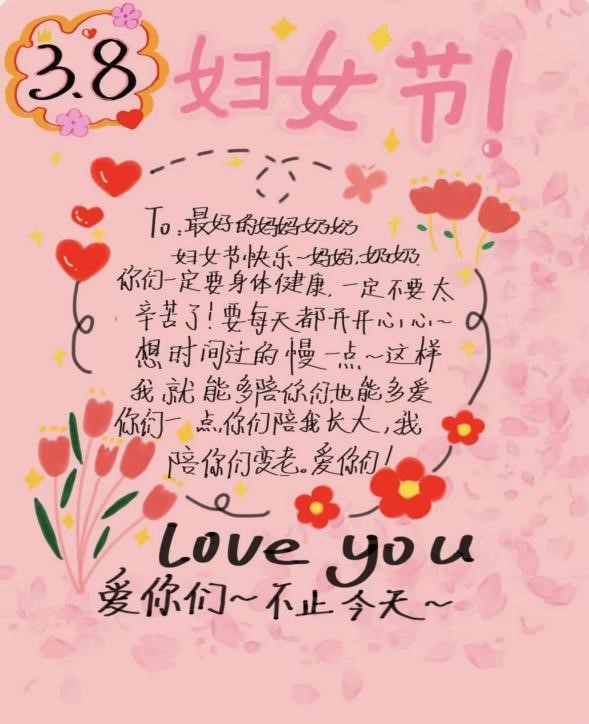 3.8
妇女节!
To:最好的妈妈奶奶
妇女节快乐~妈妈.奶奶
你们一定要身体健康.一定不要太
辛苦了!要每天都开开心心~
想时间过的慢一点~这样
我就能多陪你们也能多爱
你们一点.你们陪我长大,我
陪你们变老。爱你们!
Love you
爱你们~不止今天~